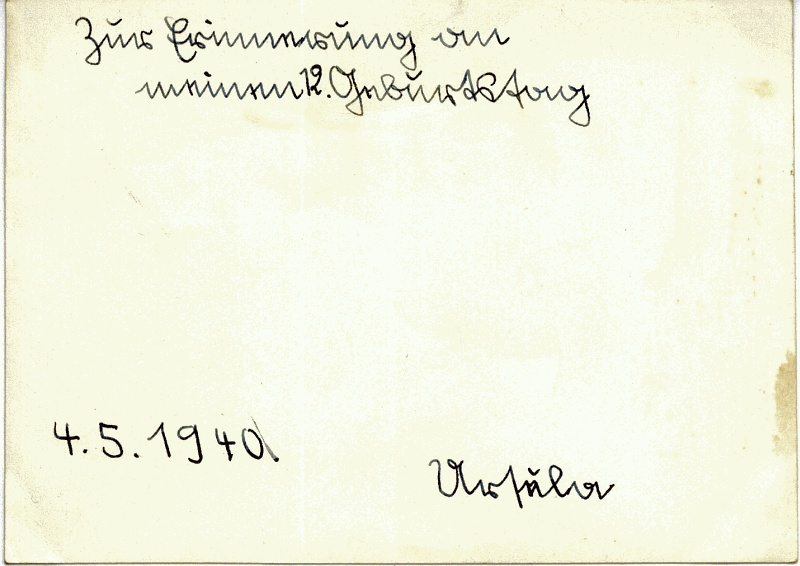 Zur Erinnerung an
meinen 12. Geburtstag
4.5.1940.
Ursula